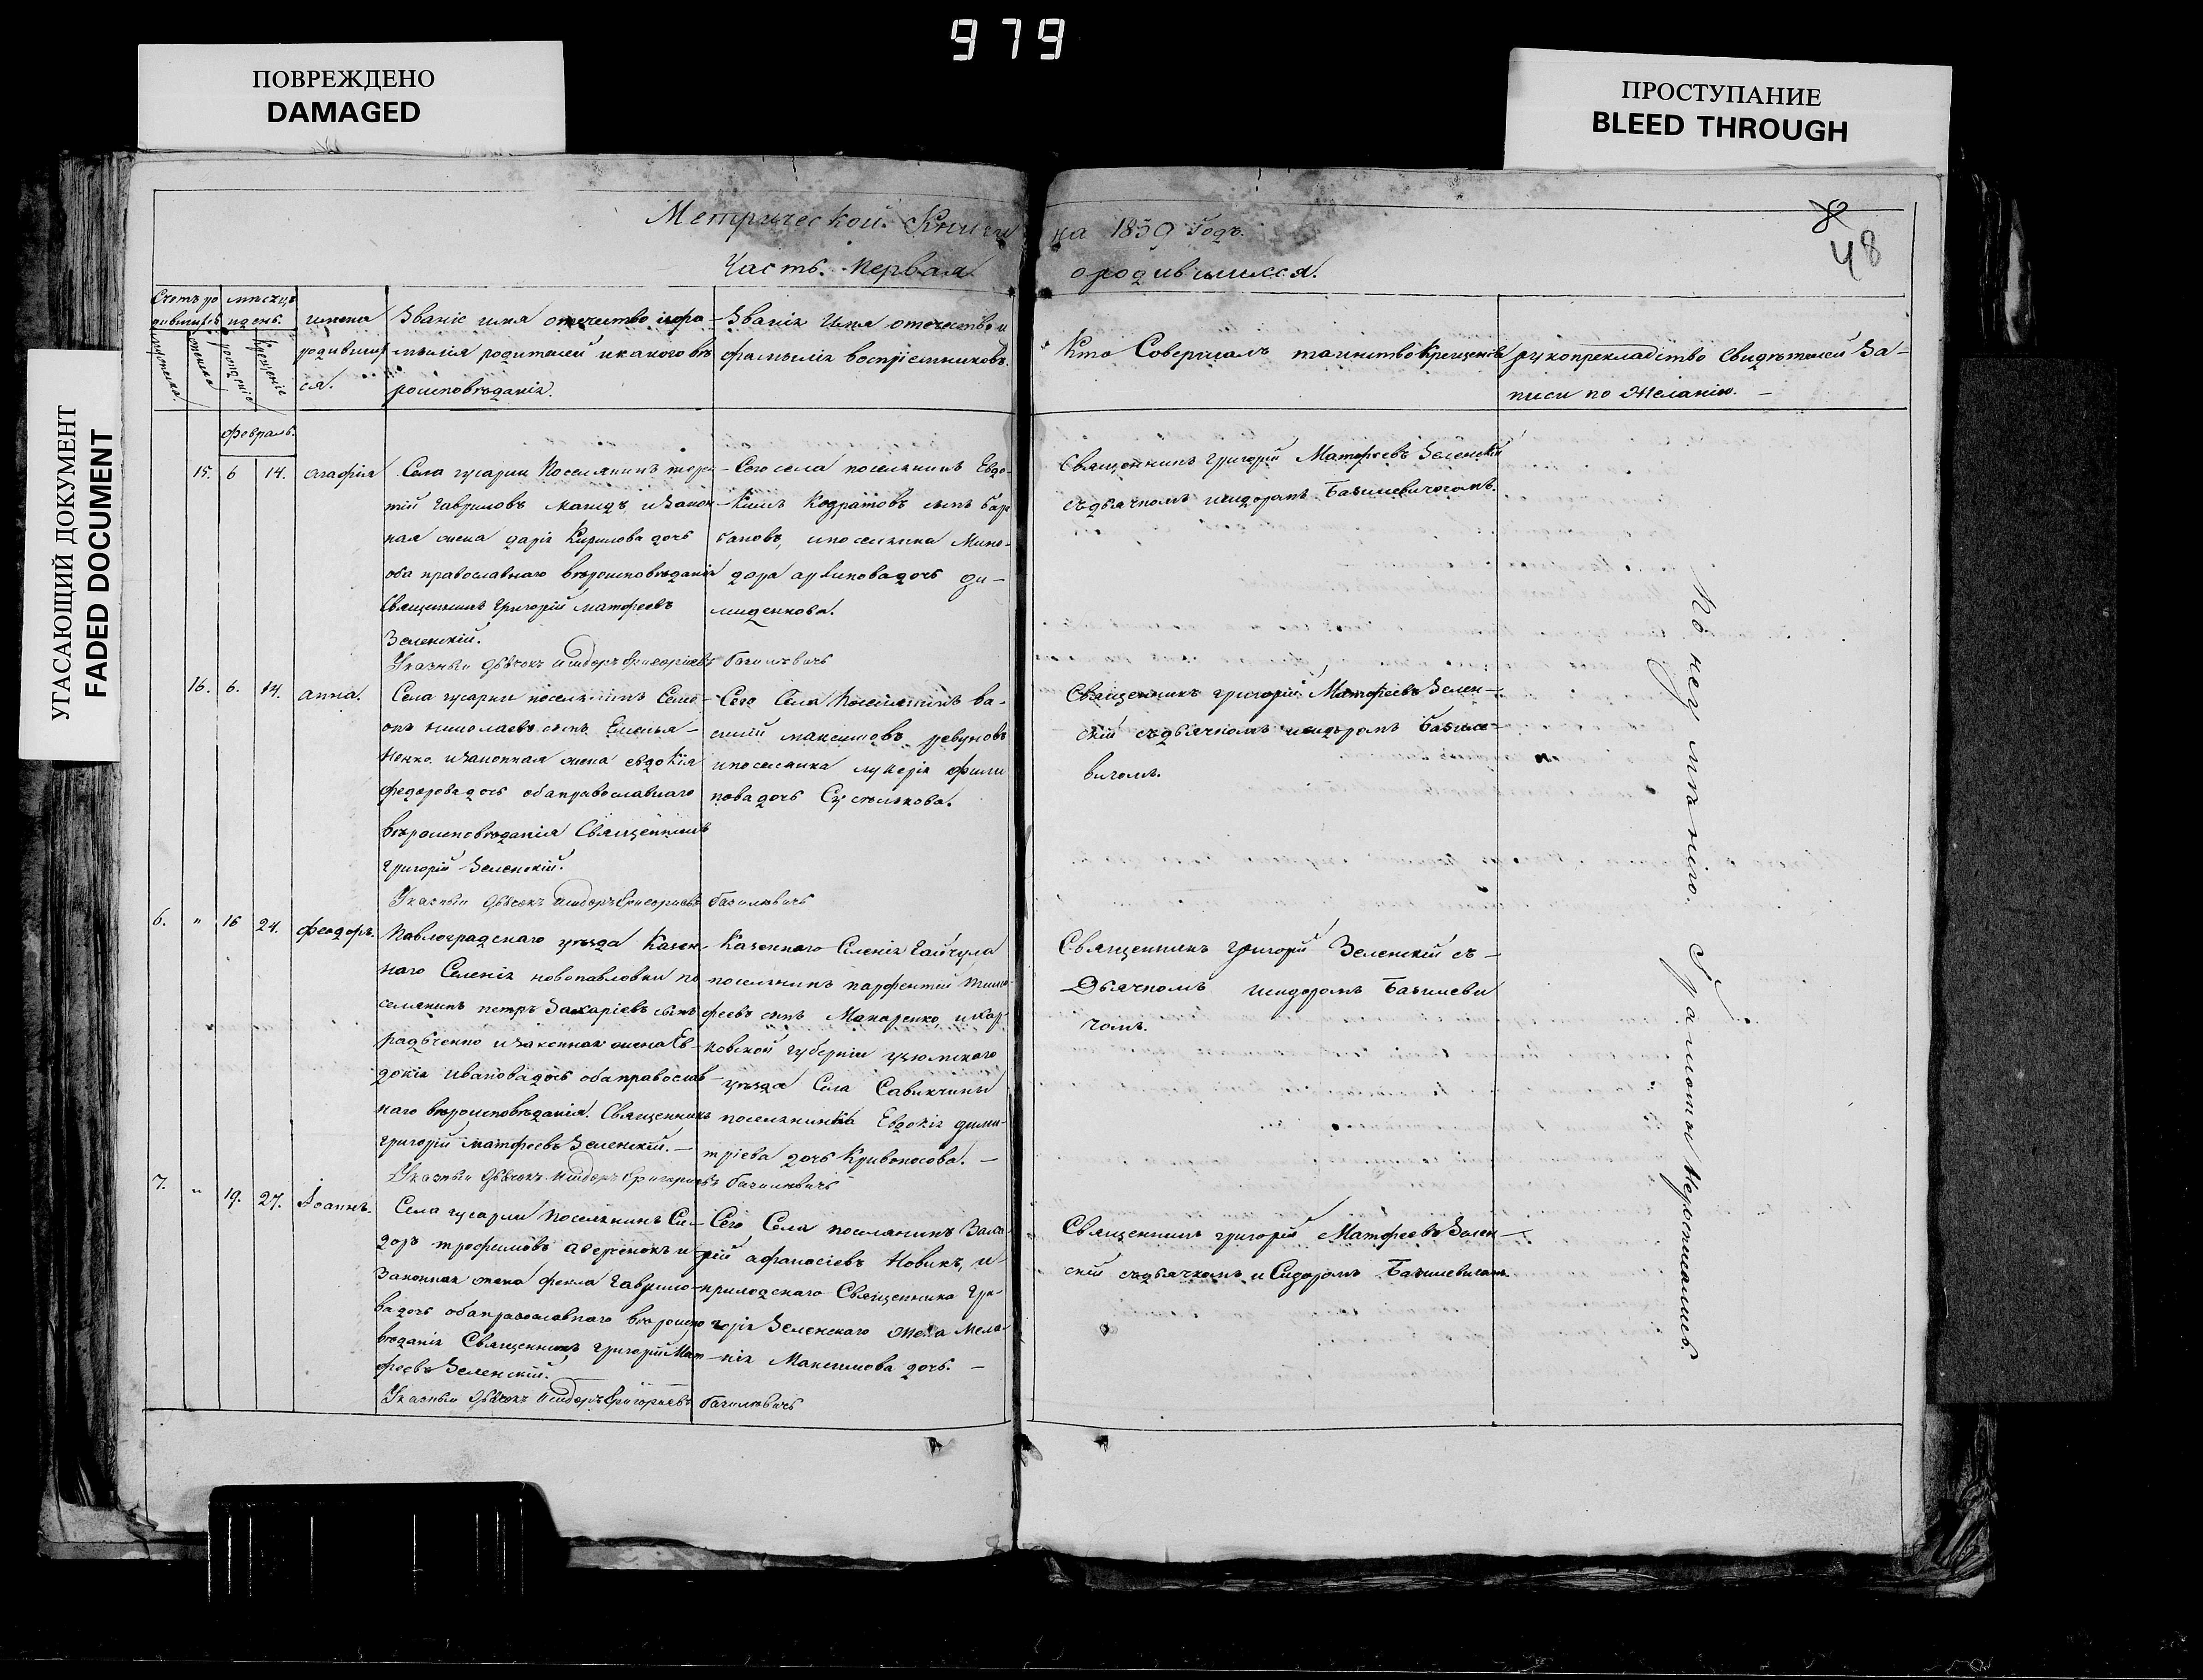 979
ПОВРЕЖДЕНО
DAMAGED
ПРОСТУПАНИЕ
BLEED THROUGH
УГАСАЮЩИЙ ДОКУМЕНТ
FADED DOCUMENT
48
Метрической Книги на 1839 Годъ.
Часть Первая о родившихся.
Счетъ ро
дившихся
мужеска
женска
мѣсяцъ
и день
рожденіе
крещеніе
имена
родивших
ся.
Званіе имя отчество и фа-
милія родителей и какого вѣ
роисповѣданія.
Званіе Имя отчество и
фамилія воспріемниковъ.
Кто Совершалъ таинство Крещенія
рукоприкладство Свидѣтелей За-
писи по Желанію. —
Февраль.
15. 6 14. Агафія
Села гусарки Поселянинъ
тій Гавриловъ и закон-
ная жена дарія Кирилова дочь
оба православнаго вѣроисповѣданія
Священникъ Григорій матфеевъ
Зеленскій.
Указный Дьячокъ Исидоръ Григориевъ Базилевичь
Сего села поселянинъ Евдо-
кимъ Кодратовъ сынъ
и поселянка Мино-
дора архипова дочь ди-
миденкова.
Священникъ Григорій Матфеевъ Зеленскій
съ дьячкомъ исидоромъ Базилевичомъ.
16. 6. 14. анна.
Села гусарки поселянинъ Семе-
онъ николаевъ сынъ Емелья-
ненко, и законная жена евдокія
федорова дочь оба православнаго
вѣроисповѣданія Священникъ
григорій Зеленскій.
Указный Дьячокъ Исидоръ Григориевъ Базилевичь
Сего Села Поселянинъ ва-
силій максимовъ ревуновъ
и поселянка лукерія фили
пова дочь
Священникъ григорій Матфеевъ Зелен-
скій съ дьячкомъ исидоромъ Базиле-
вичомъ.
6. " 16 24. феодоръ.
Павлоградскаго уѣзда Казен-
наго Селенія новопавловки по
селянинъ петръ Захаріевъ сынъ
радченко и законная жена Ев-
докія иванова дочь оба православ-
наго вѣроисповѣданія. Священникъ
григорій матфеевъ Зеленскій. —
Указный Дьячокъ Исидоръ Григориевъ Базилевичь
Казеннаго Селенія Гайчула
поселянинъ парфентій тимо-
феевъ сынъ Макаренко, и хар-
ковской губерніи изюмскаго
уѣзда Села Савинчины
поселянинка Евдокія дими-
тріева дочь Кривоносова. —
Священникъ григорій Зеленскій съ —
Дьячкомъ исидоромъ Базилеви
чомъ.
7. " 19. 27. Іоаннъ.
Села гусарки Поселянинъ Си-
доръ трофимовъ аверченокъ и
Законная жена фекла Гаврило-
ва дочь оба православнаго вѣроиспо
вѣданія Священникъ григорій Мат
феевъ Зеленскій.
Указный Дьячокъ Исидоръ Григориевъ Базилевичь
Сего Села поселянинъ Заха-
рій афанасіевъ Новикъ, и
приходскаго Священника Гри-
горія Зеленскаго жена Мела-
нія Максимова дочь. —
Священникъ григорій Матфеевъ Зелен —
скій съ дьячкомъ и Сидоромъ Базилевичомъ
По неумѣнію Грамоты Неросписались.